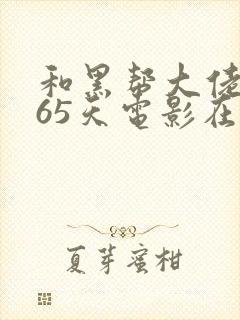 和黑帮大佬
65天电影在
夏芽蜜柑